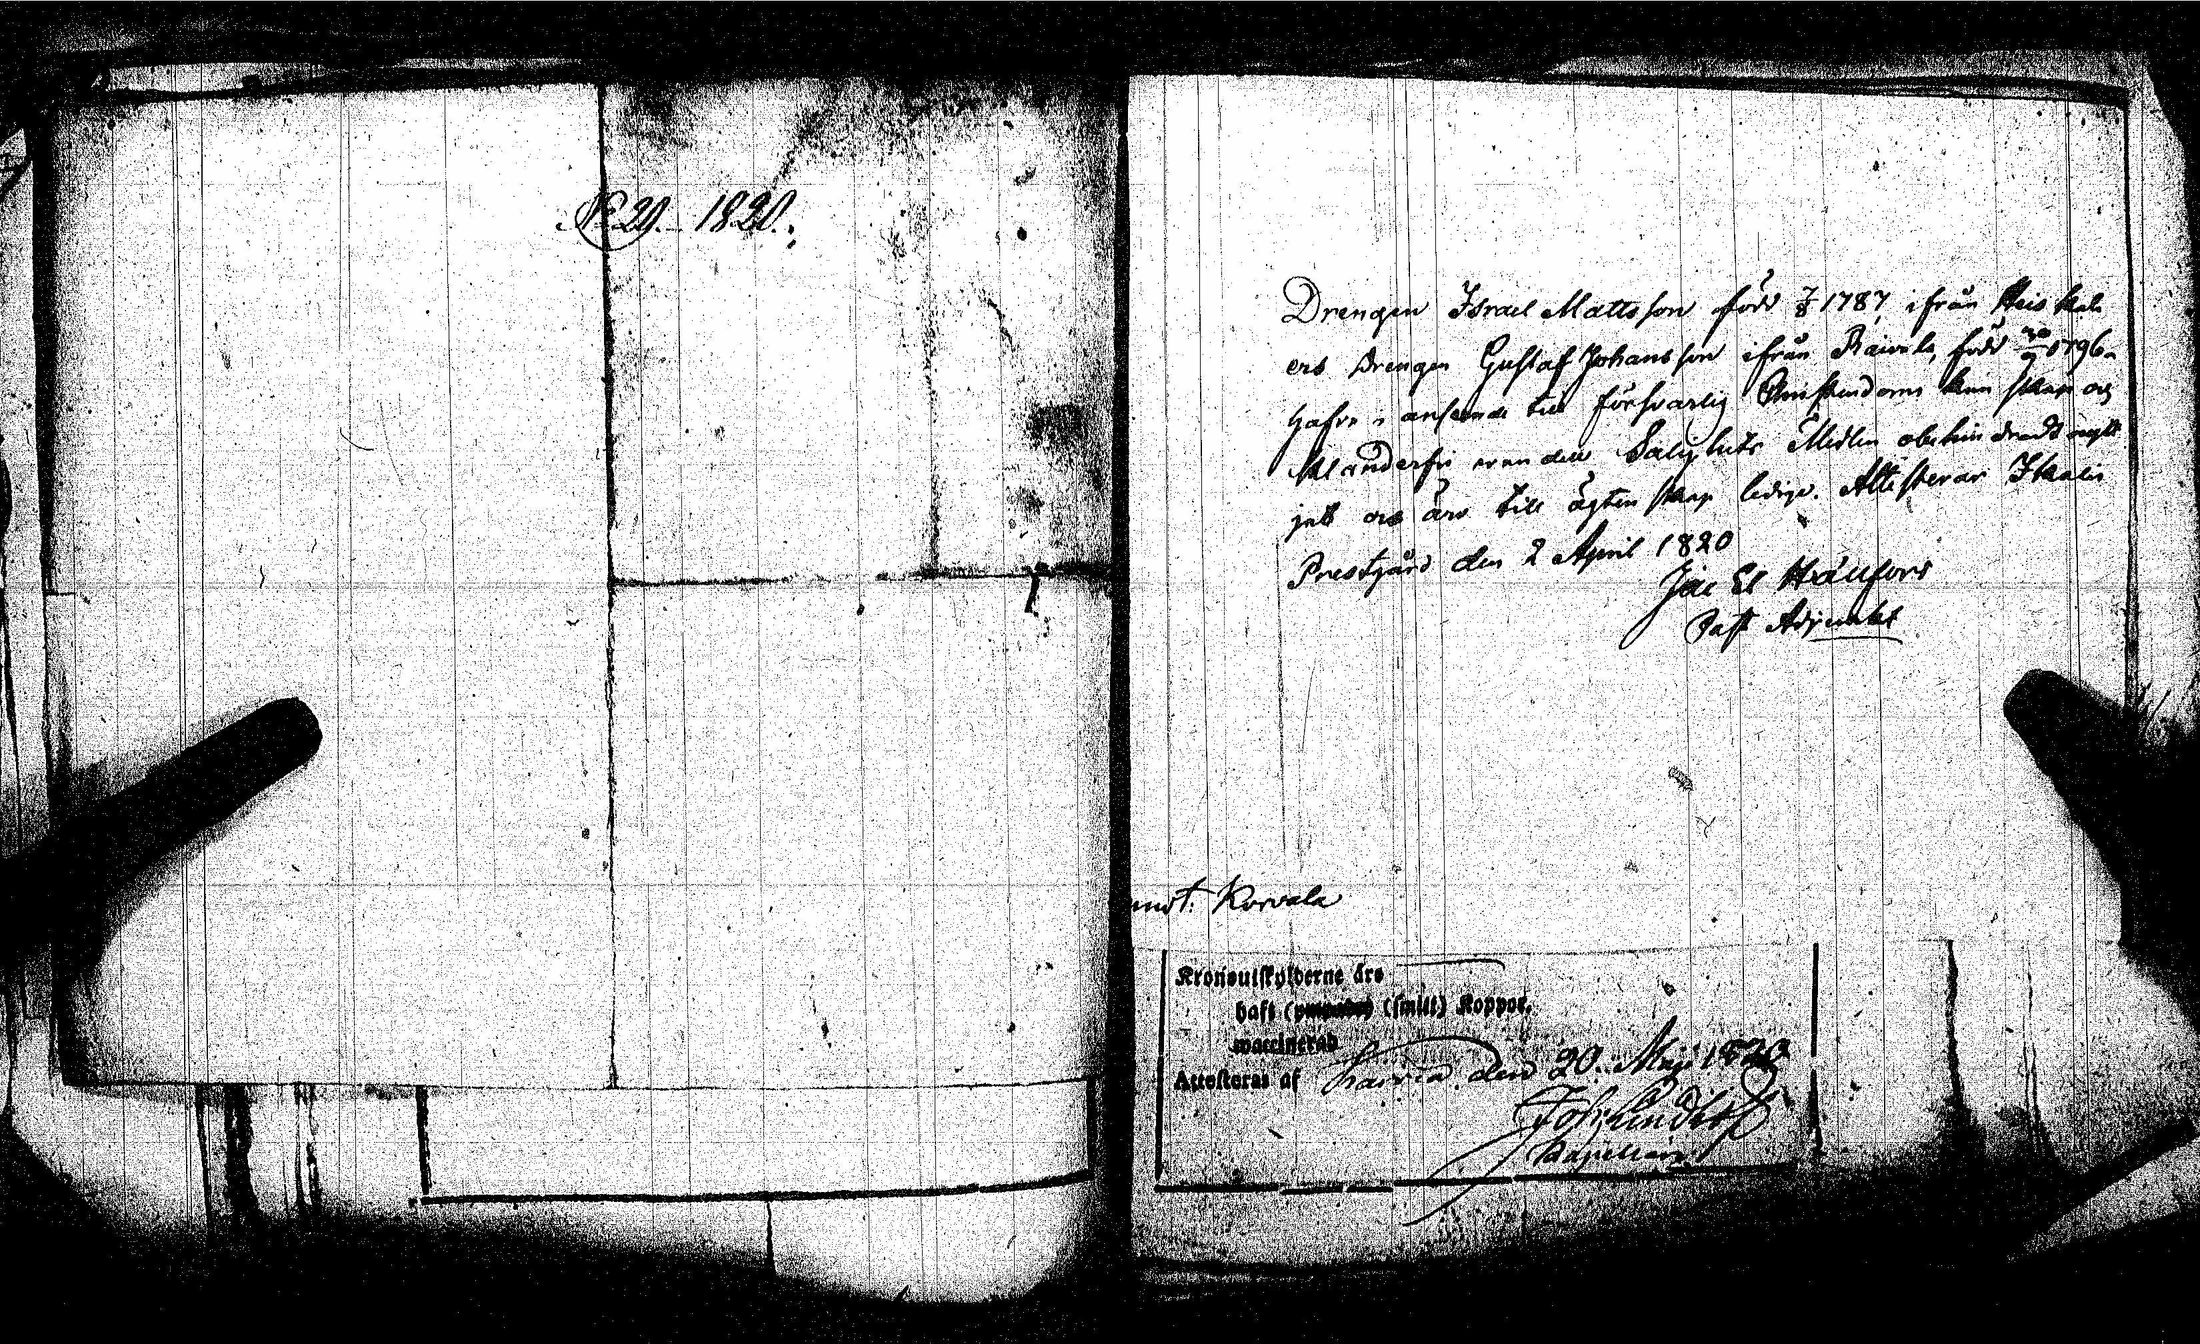 No 20. 1820.
Drengen Israel Mattsson född 7/8 1787 ifrån Heiskala
och Drengen Gustaf Johansson ifrån Raivala, född 1796
hafva i anseende till försvarlig Christendoms kunskap och
klanderfri vandel Salighets Medlen obehindradt nytt
jat och äro till ägtenskap ledige. Attesterar Ikalis
Prestgård den 2 April 1820
Jac El Hällfors
Past Adjunkt
Korvala
Kronoutskylderne äro
haft (smitt) Koppor.
vaccinerad
Attesteras af Karvia den 20. Maji 1820
Joh Lindstedt
Kapellan